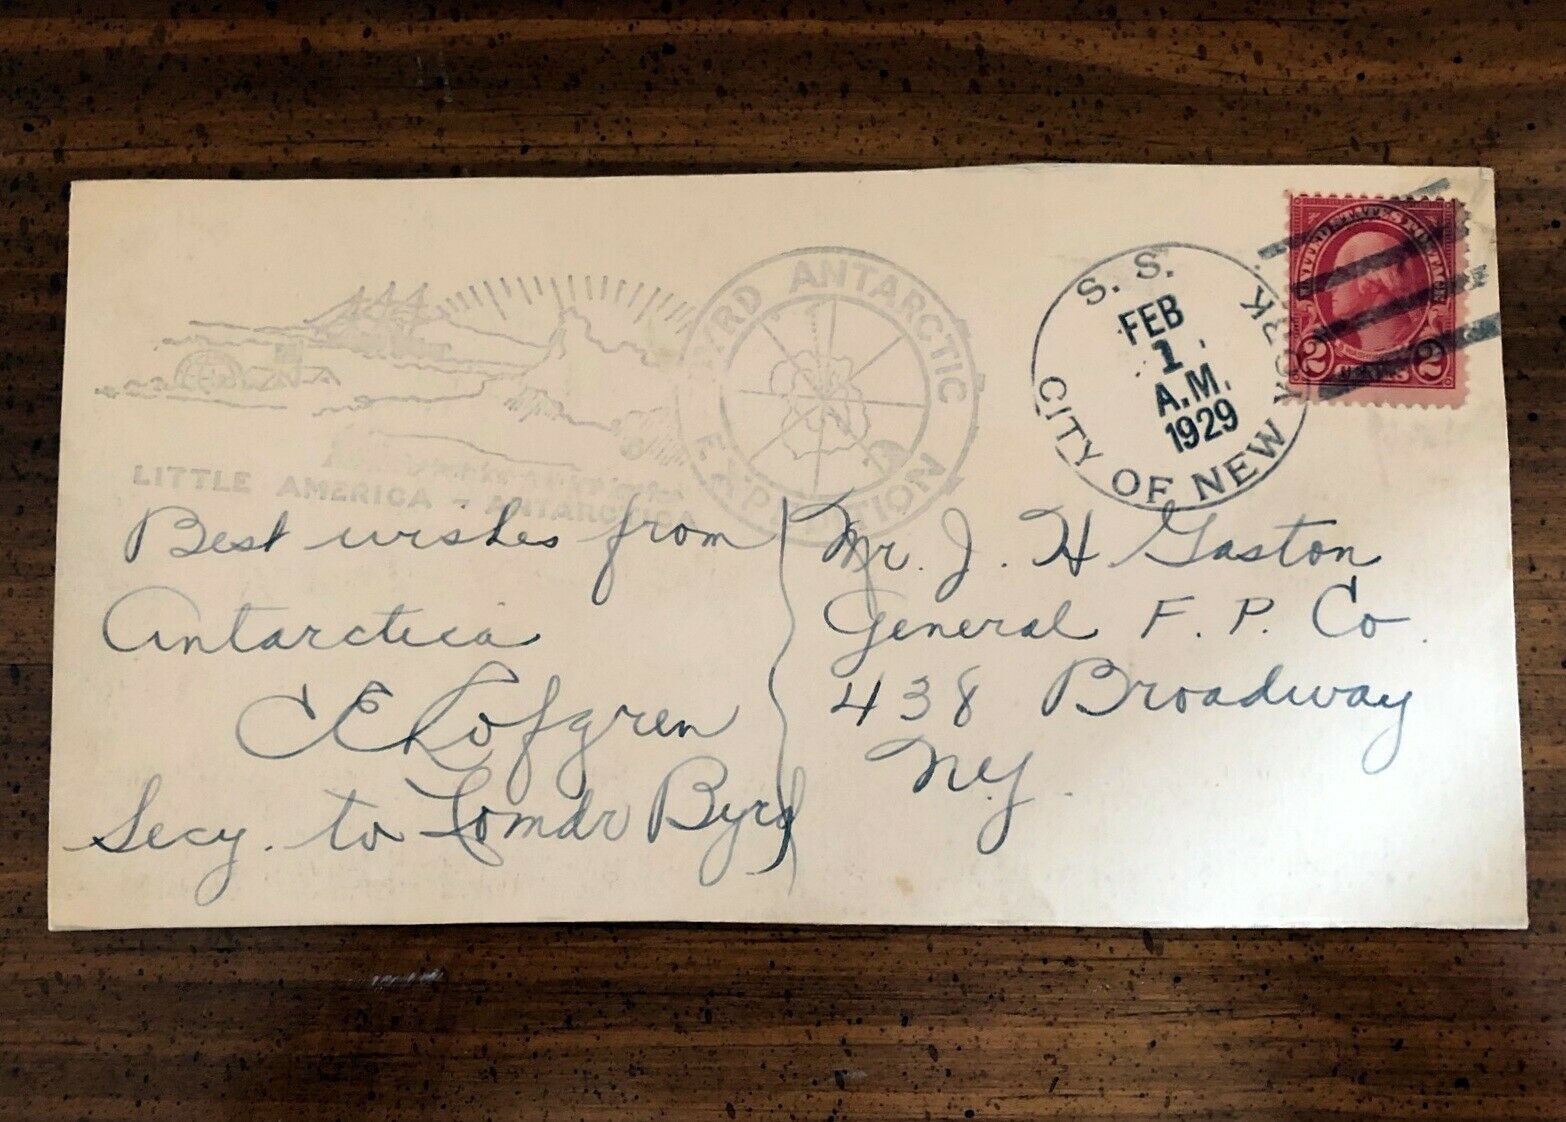 BYRD ANTARCTIC EXPEDITION
LITTLE AMERICA - ANTARCTICA
S. S. CITY OF NEW YORK
FEB
1
A.M.
1929
2 2
Best wishes from
Antarctica
C E Lofgren
Secy. to Comdr Byrd
Mr. J. H Gaston
General F. P. Co.
438 Broadway
N.Y.